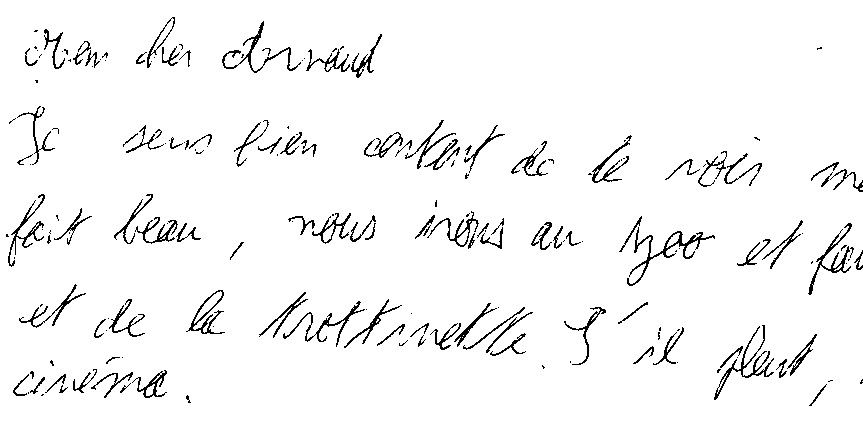 Mon cher Arnaud
Je sens bien content de te voir
fait beau, nous irons au zoo et
et de la trottinette. S'il pleut,
cinéma.